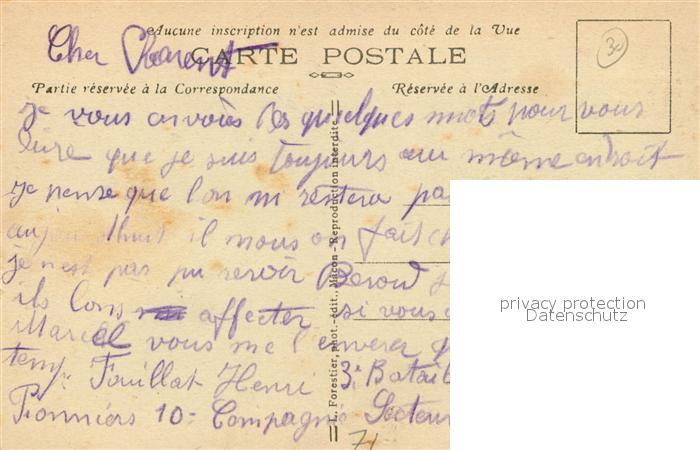 Aucune inscription n'est admise du côté de la Vue
30
Cher
CARTE POSTALE
Partie réservée à la Correspondance
Réservée à l'Adresse
je vous envoies ses quelques mots pour vous
dire que je suis toujours au même androit
je pense que l'on ni restera pa
aujourdhuit il nous on fait
je nest pas pu revoir
ils l'ons affecter si vous
Marcel vous me l'enverer
temp. Fouillat Henri 3e Batail
Pionniers 10e Compagnie Secteur
L. Forestier, phot.-édit., Macon - Reproduction interdite
71
privacy protection
Datenschutz